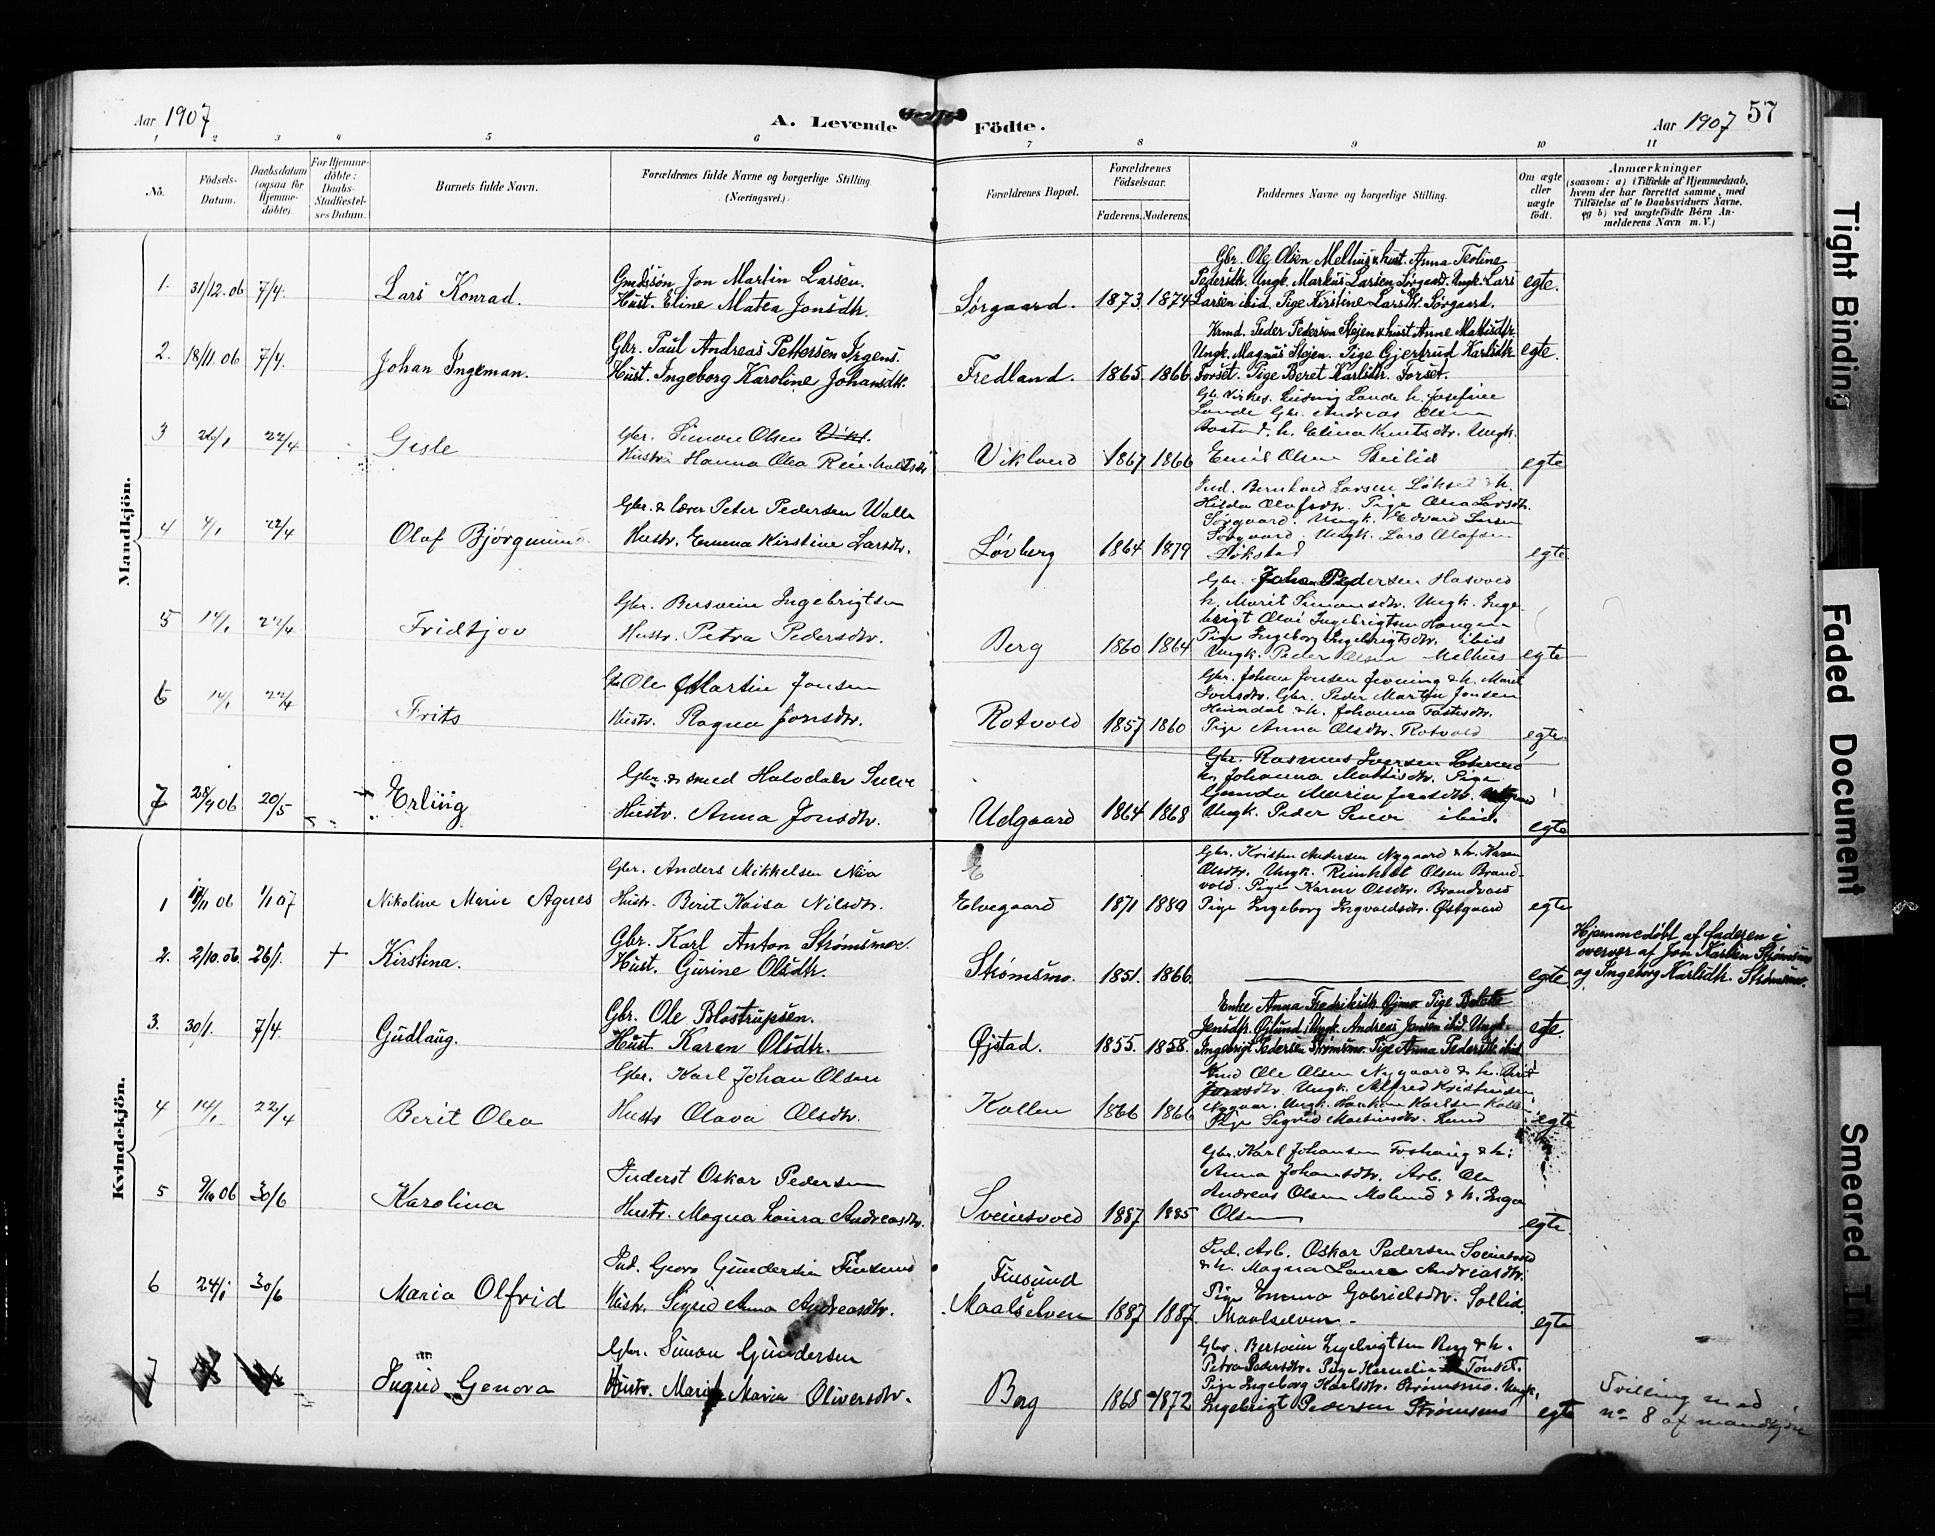 Aar 1907
A. Levende Födte.
Aar 1907 57
1 2 3 4 5 6 7 8 9 10 11
No.
Födsels-Datum.
Daabsdatum (ogsaa for Hjemme-döbte).
For Hjemme-döbte: Daabs-Stadfæstel-ses Datum.
Barnets fulde Navn.
Forældrenes fulde Navne og borgerlige Stilling. (Næringsvei.)
Forældrenes Bopæl.
Forældrenes Födselsaar.
Faderens. Moderens.
Faddernes Navne og borgerlige Stilling.
Om ægte eller uægte födt.
Anmærkninger
(saasom: a) i Tilfælde af Hjemmedaab,
hvem der har forrettet samme, med
Tilföielse af to Daabsvidners Navne.
og b) ved uægtefödte Börn An-
melderens Navn m. V.)
Mandkjön.
1. 31/12.06 7/4. Lars Konrad.
Gmdssøn Jon Martin Larsen.
Hust. Eline Matea Jonsdtr.
Sørgaard. 1873. 1874
Gbr. Ole Olsen Melhus & hust. Anna Teoline
Pedersdtr. Ungk. Markus Larsen Sørgaard. Ungk. Lars
Larsen ibid. Pige Kirstine Larsdtr. Sørgaard.
egte.
2. 18/11.06 7/4. Johan Ingeman.
Gbr. Paul Andreas Pettersen Irgens.
Hust. Ingeborg Karoline Johansdtr.
Fredland. 1865. 1866
Krmd. Peder Pedersen Stejen & hust Anne Mattisdtr.
Ungk. Magnus Stejen. Pige Gjertrud Karlsdtr.
Forset. Pige Beret Karlsdtr. Forset.
egte.
3 26/1 22/4 Gisle
Gbr. Simon Olsen Vikl.
Hustr. Hanna Olea Reinholdtsdtr
Vikland 1867 1866
Lande Gbr. Andreas Olsen
Bostad. h. Elina Knutsdtr. Ungk.
Emil Olsen
egte
4 4/1 22/4 Olaf Bjørgmund
Gbr. & lærer Peter Pedersen Walle
Hustr. Emma Kirstine Larsdtr.
Løvberg 1864 1879
Ind. Bernhard Larsen Løkset & h.
Hilda Olafsdtr. Pige Olea Larsdtr.
Sørgaard. Ungk. Edvard Larsen
Sørgaard. Ungk. Lars Olafsen
Løkstad
egte
5 14/1 22/4 Fridtjov
Gbr. Bersvein Ingebrigtsen
Hustr. Petra Pedersdtr.
Berg 1860 1864
Gbr. Johan Pedersen Hasvold
h. Marit Simonsdtr. Ungk. Inge-
brigt Olai Ingebrigtsen Haugen
Pige Ingeborg Ingebrigtsdtr. ibid
Ungk. Peder Olsen Melhus
egte
6 14/1 22/4 Frits
Gbr Ole Martin Jonsen
Hustr. Ragna Jonsdtr.
Rotvold 1857 1860
Gbr. Johan Jonsen & h. Marit
Iversdtr. Gbr. Peder Martin Jonsen
Heimdal & h. Johanna
Pige Anna Olsdtr. Rotvold
egte.
7 28/9 06 20/5 Erling
Gbr. & smed Halvdan
Hustr. Anna Jonsdtr.
Udgaard 1864 1868
Gbr. Rasmus Iversen
h. Johanna Mattisdtr. Pige
Gunda Maria Jonsdtr.
Ungk. Peder ibid.
egte
Kvindekjön.
1 11 06 1/1 07 Nikoline Marie Agnes
Gbr. Anders Mikkelsen
Hustr. Berit Kaisa Nilsdtr.
Elvegaard 1871 1880
Gbr. Kristen Andersen Nygaard & h. Karen
Olsdtr. Ungk. Reinholdt Olsen Brand-
vold. Pige Karen Olsdtr. Brandvold
Pige Ingeborg Ingvaldsdtr. Østgaard
egte
2. 2/10.06. 26/1. + Kirstina.
Gbr. Karl Anton Strømsmoe.
Hust. Gurine Olsdtr.
Strømsmo. 1851. 1866.
egte
Hjemmedøbt af faderen i
overvær af Jon Karlsen Strømsmo
og Ingeborg Karlsdtr. Strømsmo.
3. 30/1. 7/4 Gudlaug.
Gbr. Ole Blostrupsen.
Hust. Karen Olsdtr.
Øjstad. 1855. 1858.
Enke Anna Fredriksdtr. Øjmo Pige
Jensdtr. Øjlund. Ungk. Andreas Jensen ibid. Ungk.
Ingebrigt Pedersen Strømsmo. Pige Anna Pedersdtr. ibid
egte.
4 14/1 22/4 Berit Olea
Gbr. Karl Johan Olsen
Hustr Olava Olsdtr.
Kollen 1866 1866
Ole Olsen Nygaard & h. Brit
Jonsdtr. Ungk. Alfred Kristensen
Nygaar. Ungk. Haakon Karlsen
Pige Sigrid Mortensdtr. Lund
egte
5 9/10 06 30/6 Karolina
Inderst Oskar Pedersen
Hustr. Magna Laura Andreasdtr.
Sveinsvold 1887 1885
Gbr. Karl Johansen Foshaug & h.
Anna Johansdtr. Arb. Ole
Andreas Olsen Molund & h. Inga
Olsen
egte
6 24/1 30/6 Maria Olfrid
Ind. Georg Gundersen Finsund
Hustr. Sigrid Anna Andreasdtr.
Finsund
Maalselven 1887 1887.
Ind. Arb. Oskar Pedersen Sveinsvold
& h. Magna Laura Andreasdtr.
Pige Emma Gabrielsdtr. Sollid.
Maalselven.
egte
7 Ingrid Genora
Gbr. Simon Gundersen
Hustr. Marit Maria Oliversdtr.
Berg 1868 1872
Gbr. Bersvein Ingebrigtsen Berg & h.
Petra Pedersdtr. Pige Tønset.
Pige Ingeborg Karlsdtr. Strømsmo. Ungk.
Ingebrigt Pedersen Strømsmo
egte
Tvilling med
no 8 af mandkjøn
Tight Binding
Faded Document
Smeared Ink